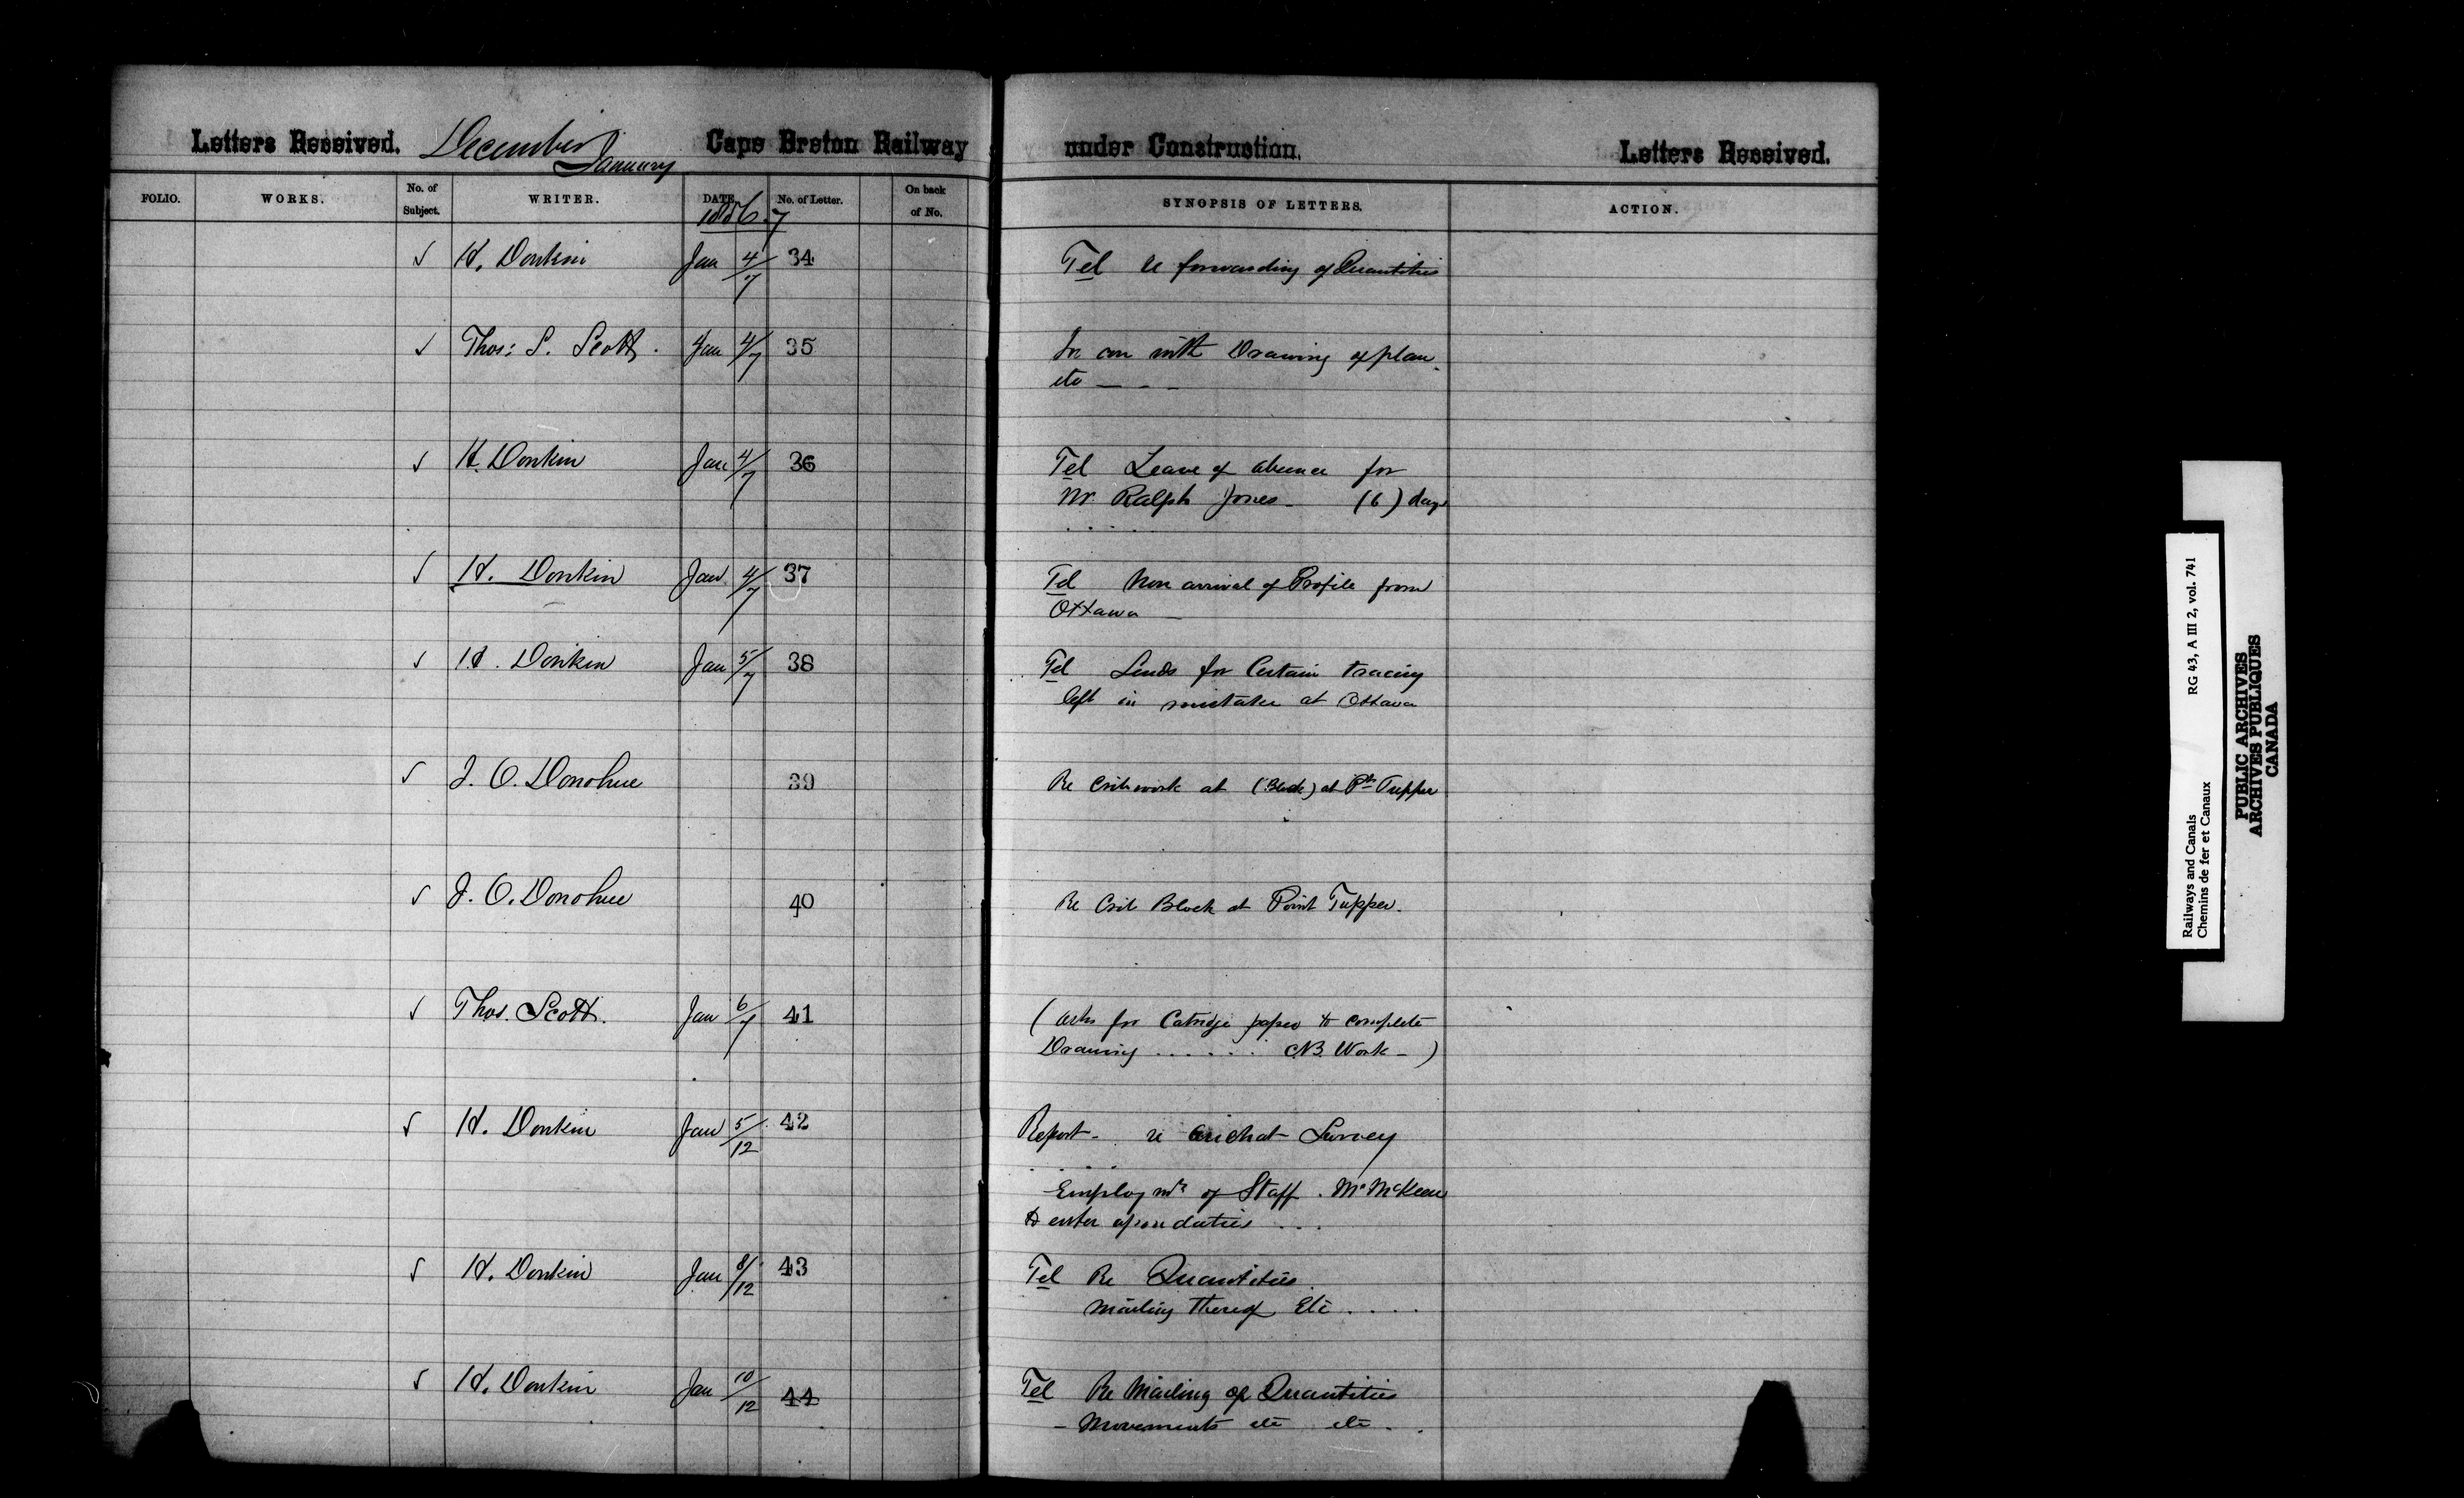 Letters Received. December January Cape Breton Railway under Construction. Letters Received.
FOLIO. WORKS. No. of Subject. WRITER. DATE No. of Letter. On back of No. SYNOPSIS OF LETTERS. ACTION.
1886.7
✓ H. Donkin Jan 4/7 34 Tel re forwarding of Quantities
✓ Thos: S. Scott. Jan 4/7 35 In con with Drawing of plan.
etc — - -
✓ H. Donkin Jan 4/7 36 Tel Leave of absence for
Mr. Ralph Jones - (6) days
✓ H. Donkin Jan. 4/7 37 Tel Non arrival of Profile from
Ottawa —
✓ H. Donkin Jan 5/7 38 Tel Sends for Certain tracing
left in mistake at Ottawa
✓ J. O. Donohue 39 Re Cribwork at (Block) at Pt. Tupper
✓ J. O. Donohue 40 Re Crib Block at Point Tupper.
✓ Thos. Scott. Jan 6/7 41 (Asks for Catridge paper to complete
Drawing ...... C.B. Work - )
✓ H. Donkin Jan 5/12 42 Report - re Arichat Survey
. . . .
Employmt of Staff. Mr McKeen
to enter upon duties ...
✓ H. Donkin Jan 8/12 43 Tel Re Quantities
mailing thereof Etc ....
✓ H. Donkin Jan 10/12 44 Tel Re Mailing of Quantities
- Movements etc etc.
Railways and Canals RG 43, A III 2, vol. 741
Chemins de fer et Canaux
PUBLIC ARCHIVES
ARCHIVES PUBLIQUES
CANADA